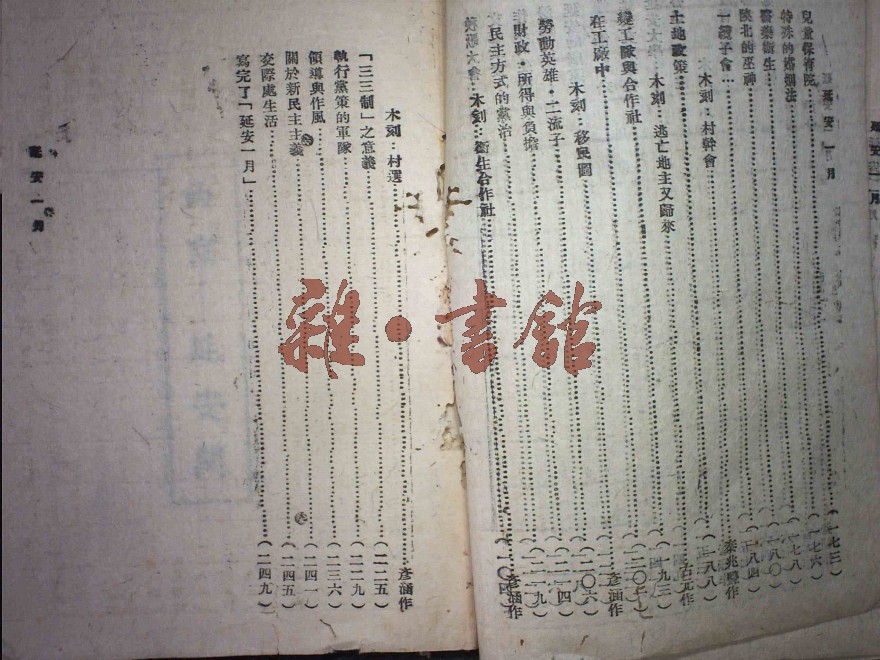 延安一月
兒童保育院……(一七三)
特殊的婚姻法……(一七六)
醫藥衛生……(一七八)
陝北的巫神……(一八〇)
一攬子會……(一八四)
木刻：村幹會……秦兆
土地政策……(一八八)
木刻：逃亡地主又歸來……古元作
變工隊與合作社……(一九三)
在工廠中……
木刻：移民圖……彥涵作
勞動英雄・二流子……(二〇六)
財政・所得與負擔……(二一四)
民主方式的黨治……(二一九)
木刻：衛生合作社……彥涵作
木刻：村選……彥涵作
「三三制」之意義……(二二五)
執行黨策的軍隊……(二二九)
領導與作風……(二三六)
關於新民主主義……(二四一)
交際處生活……(二四五)
寫完了「延安一月」……(二四九)
延安一月
雜・書館